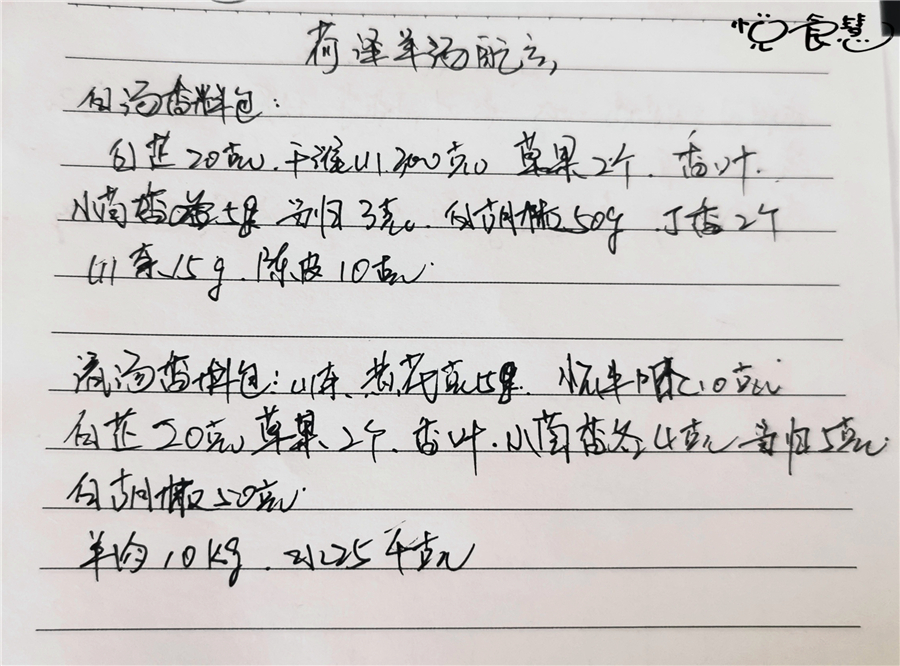 悦食慧
荷泽羊汤配方
白汤香料包：
白芷20克、干淮山300克。草果2个、香叶、
小茴香各5g 当归3克。白胡椒50g、丁香2个
山奈15g、陈皮10克.
清汤香料包：山奈、黄芪克15g、10克
白芷20克草果2个、香叶、小茴香各4克 当归5克.
白胡椒50克.
羊肉10kg、水25千克